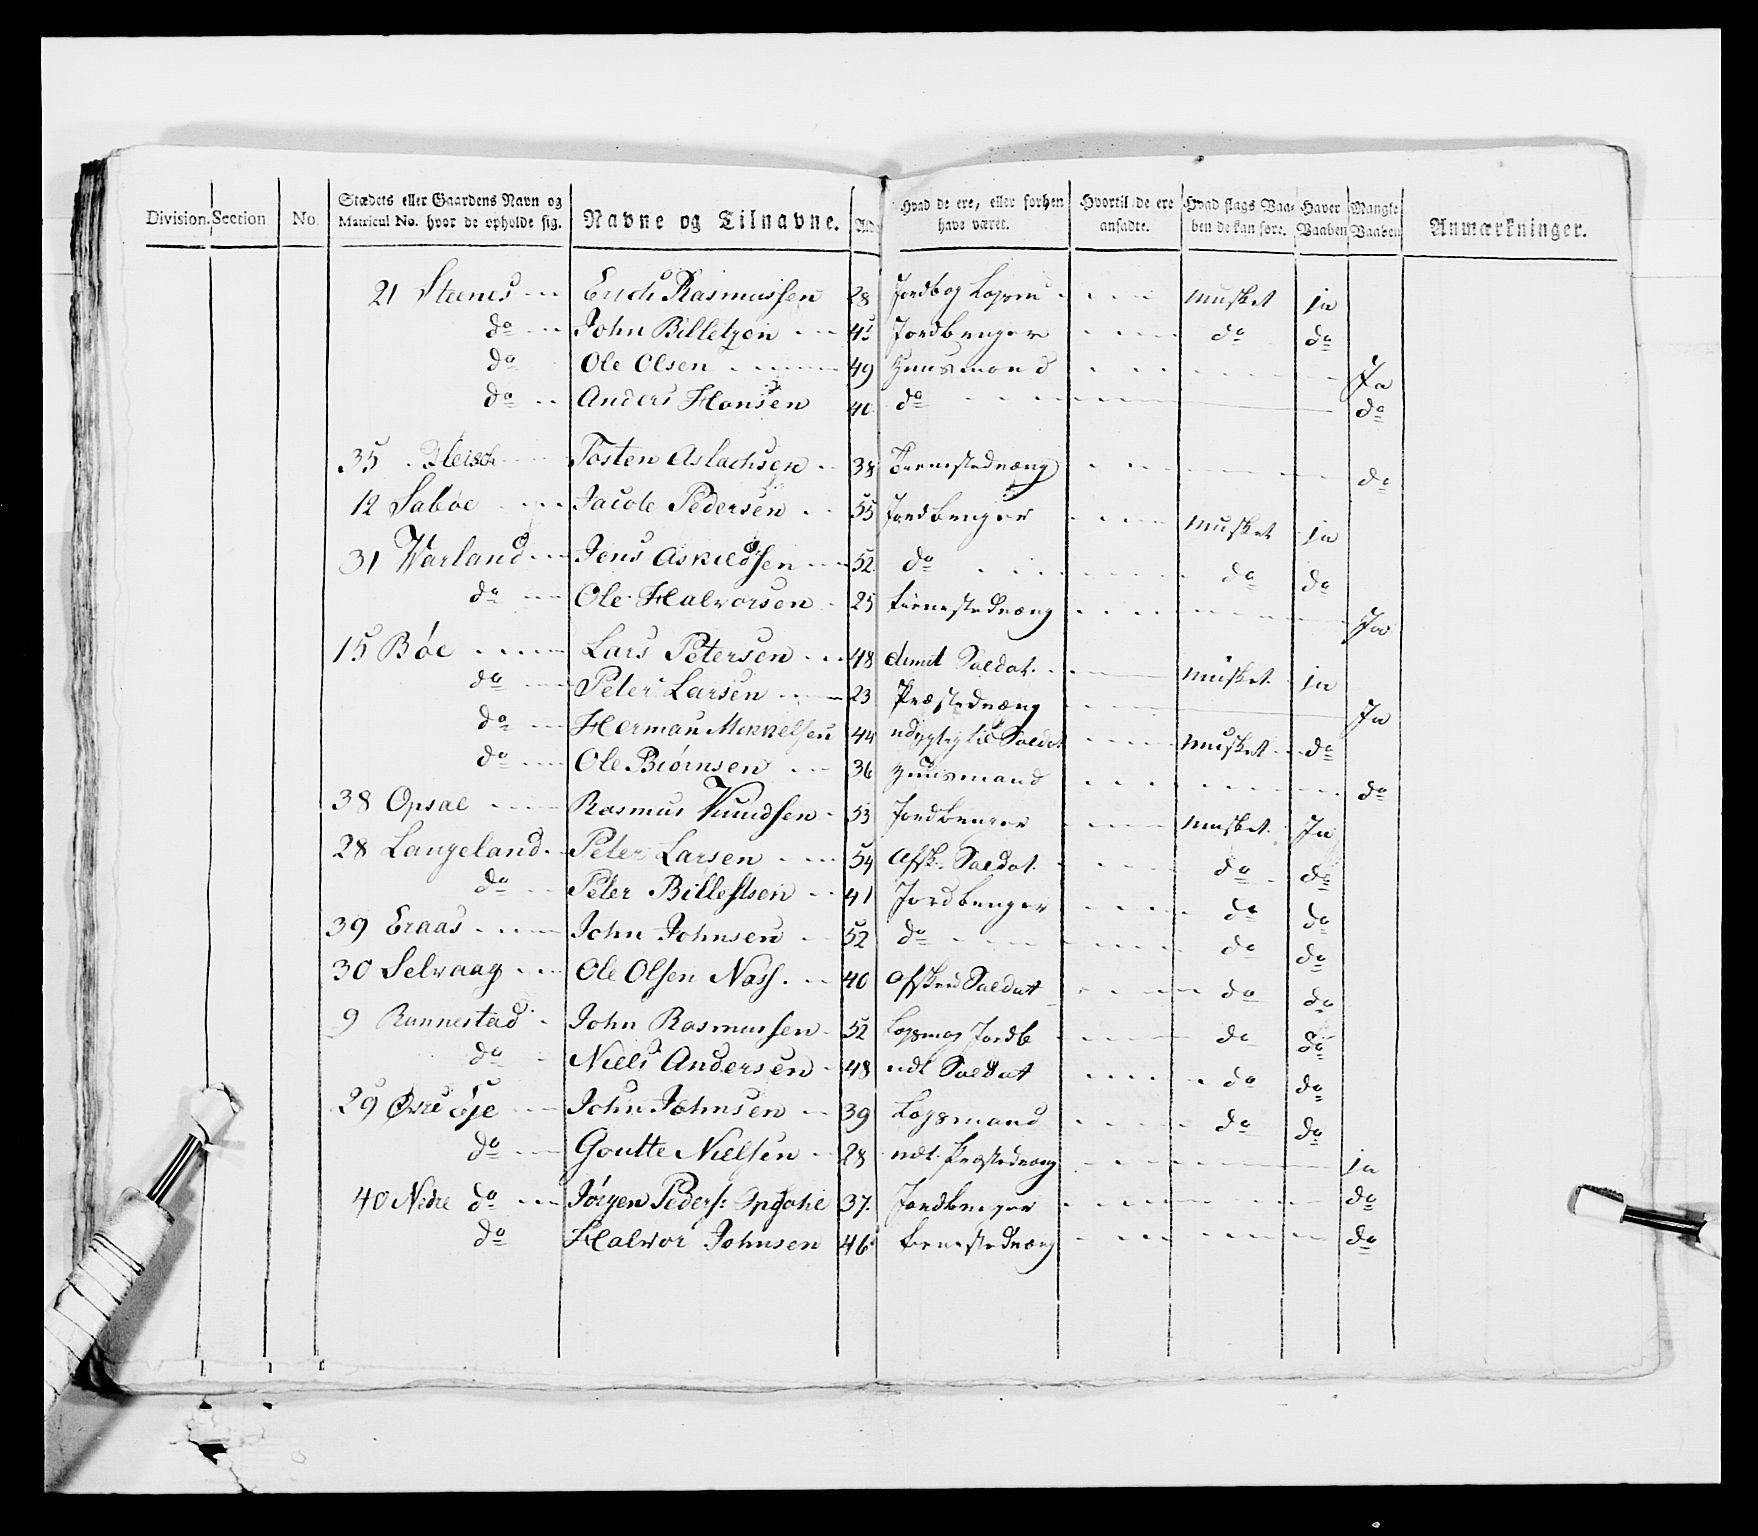 Division. Section No. Stædets eller Gaardens Navn og Matricul No. hvor de opholde sig. Navne og Tilnavne. Ald. Hvad de ere, eller forhen have været. Hvortil de ere ansadte. Hvad slags Vaaben de kan føre. Haver Vaaben Mangle Vaaben Anmærkninger.
21 Steenes Erich Rasmussen 28 Jordb og Losm Musket ja
do John Billetzen 45 Jordbruger do do
do Ole Olsen 49 Huusmand Ja
do Anders Hansen 40 do do
35 Tosten Aslachsen 38 Tienestedræng do
12 Saboe Jacob Pedersen 55 Jordbruger Musket ja
31 Warland Jens Askildsen 52 do do do
do Ole Halvorsen 25 tienestedræng Ja
15 Bøe Lars Petersen 48 dimit Soldat Musket ja
do Peter Larsen 23 Præstedræng Ja
do Herman Mikkelsen 44 Soldat Musket do
do Ole Biørnsen 36 Huusmand do
38 Opsal Rasmus Knudsen 53 Jordbruger Musket Ja
28 Langeland Peter Larsen 54 Afsk. Soldat do do
do Peter Billestsen 41 Jordbruger do do
39 Eraas John Johnsen 52 do do do
30 Selvaag Ole Olsen Næss 40 Afsked Soldat do do
9 Runnestad John Rasmussen 52 Losm og Jordb do do
do Niels Andersen 48 udt Soldat do do
29 Øvre Eje John Johnsen 39 Losmand do do
do Goutte Nielsen 28 udt. Præstedræng ja
40 Nedre do Jørgen Peders: 37. Jordbruger do
do Halvor Johnsen 46 tienestedræng do